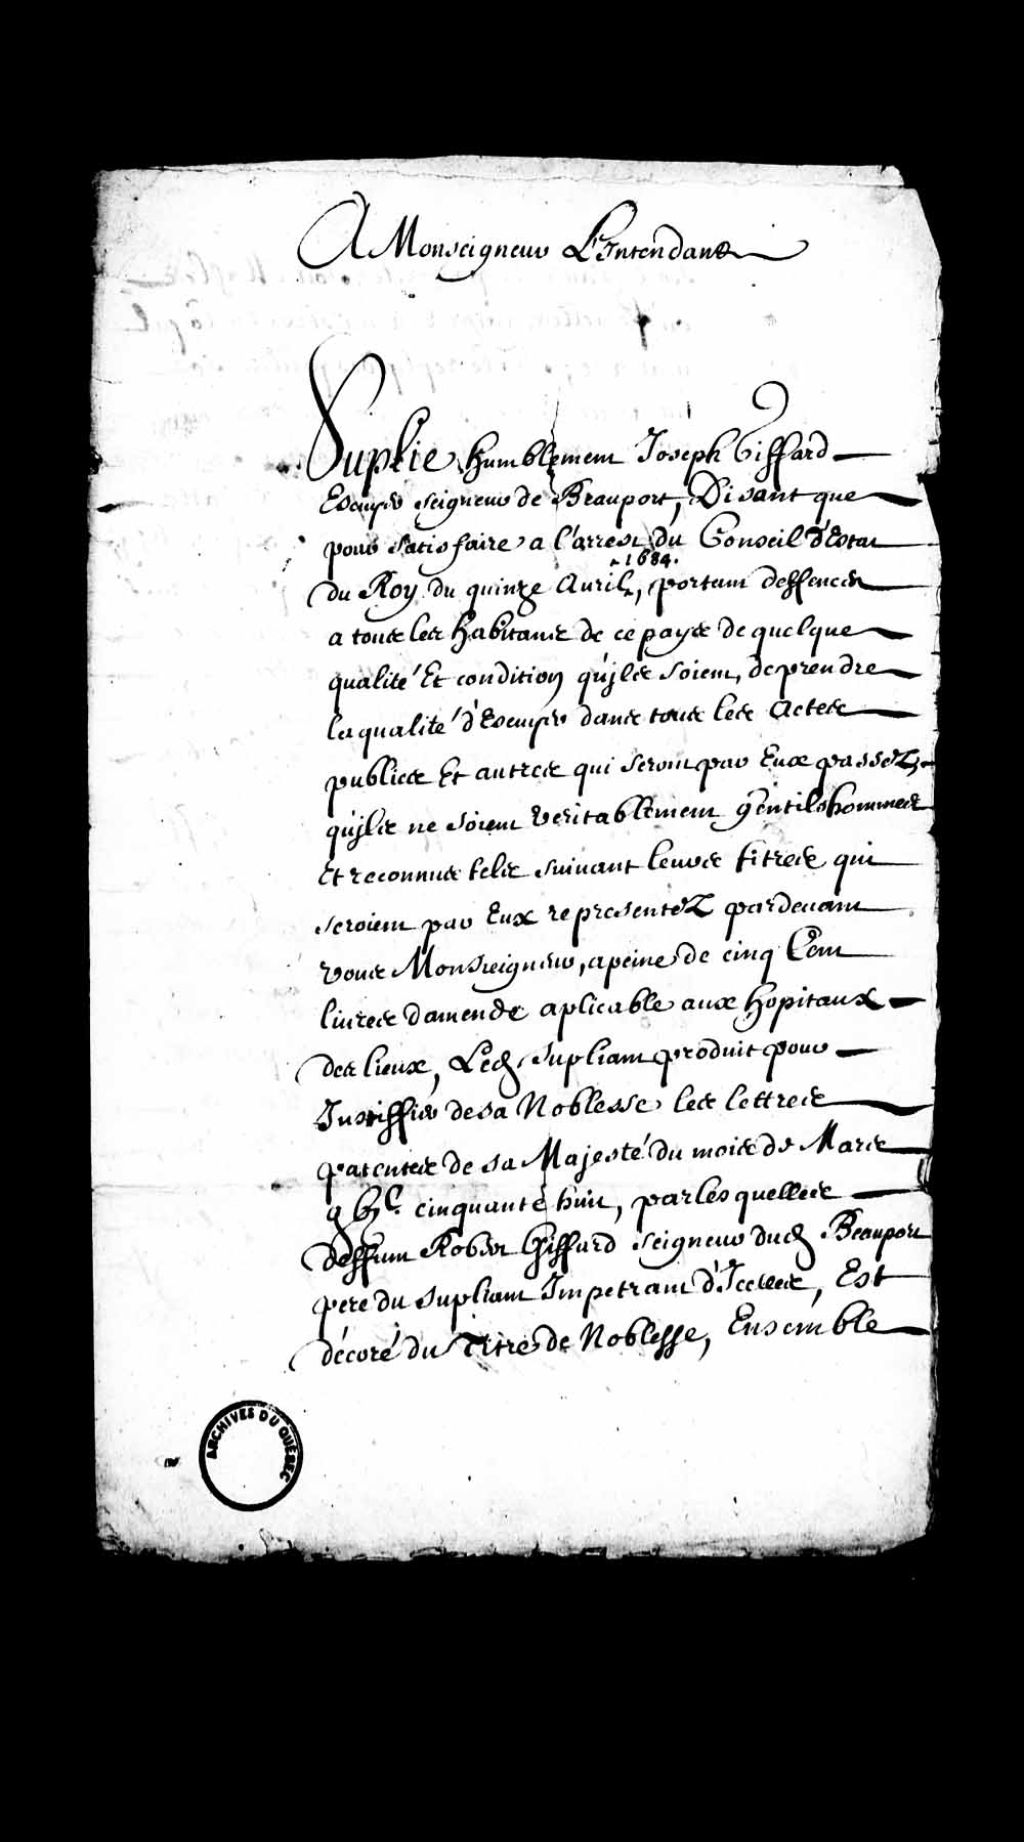 A Monseigneur L'Intendant
Suplie humblement Joseph Giffard
Escuyer seigneur de Beauport, Disant que
pour satisfaire a l'arrest du Conseil d'Estat
1684.
du Roy du quinze Auril, portant deffences
a tous les habitans de ce pays de quelque
qualité Et condition qu'jls soient, de prendre
la qualité d'Escuyer dans tous les actes
publics Et autres qui seront par Eux passez,
qu'jls ne soient veritablement gentilshommes
Et reconnus tels suivant leurs titres qui
seroient par Eux representéz pardevant
vous Monseigneur, a peine de cinq Cent
liures damende aplicable aux hopitaux
des lieux, Led. supliant produit pour
Justiffier de sa Noblesse les lettres
patentes de sa Majesté du mois de Mars
cinquante huit, par lesquelles
deffunt Robert Giffard seigneur dud. Beauport
pere du supliant Impetrant d'Icelles, Est
décoré du Titre de Noblesse, Ensemble
ARCHIVES DU QUÉBEC